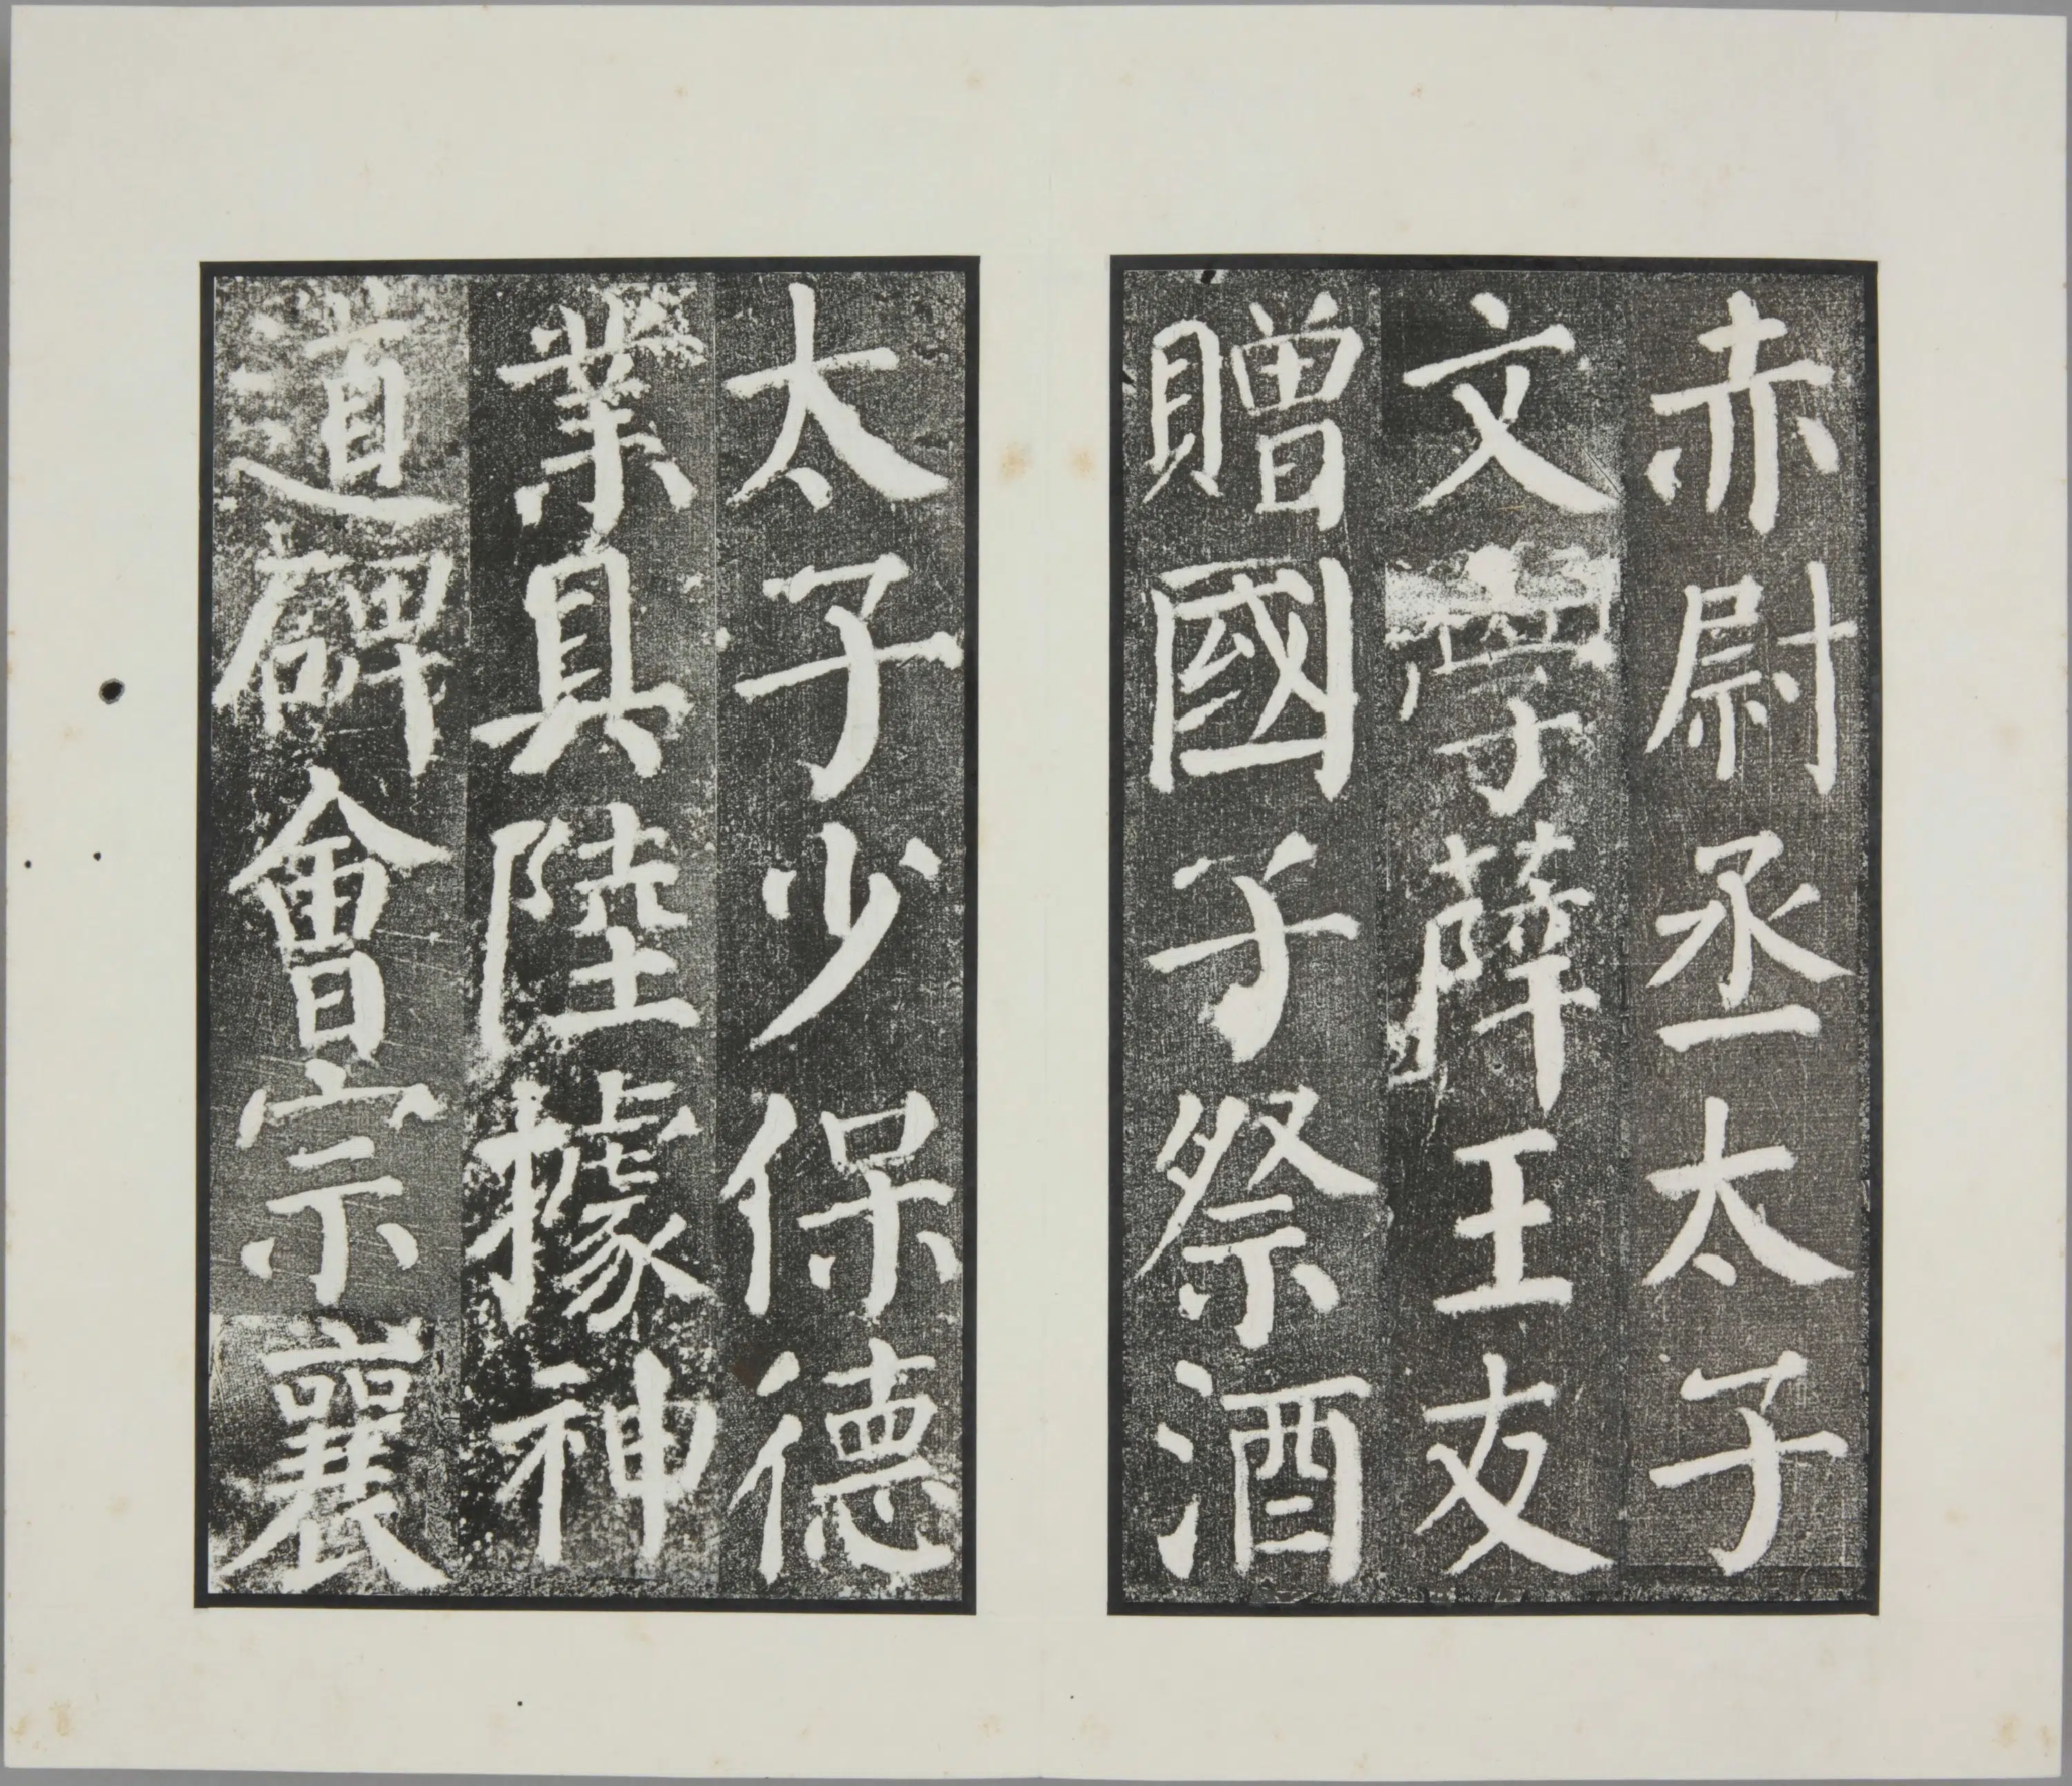 赤尉丞太子
文學薛王友
贈國子祭酒
太子少保德
業具陸據神
道碑會宗襄